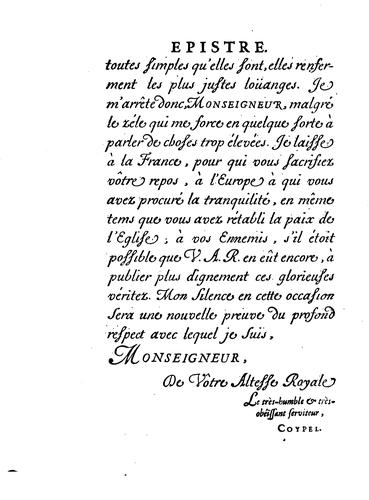 EPISTRE.
toutes simples qu'elles sont, elles renfer-
ment les plus justes loüanges. Je
m'arrête donc, MONSEIGNEUR, malgré
le zéle qui me force en quelque sorte à
parler de choses trop élevées. Je laisse
à la France, pour qui vous sacrifiez
vôtre repos, à l'Europe à qui vous
avez procuré la tranquilité, en même
tems que vous avez rétabli la paix de
l'Eglise; à vos Ennemis, s'il étoit
possible que V. A. R. en eût encore, à
publier plus dignement ces glorieuses
véritez. Mon silence en cette occasion
sera une nouvelle preuve du profond
respect avec lequel je suis,
MONSEIGNEUR,
De Vôtre Altesse Royale
Le très-humble & très-
obéissant serviteur,
COYPEL.